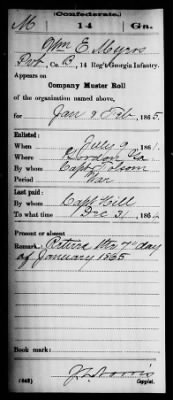 (Confederate.)
M 14 Ga.
Wm E. Myers
Pvt, Co. B, 14 Reg't Georgia Infantry.
Appears on
Company Muster Roll
of the organization named above,
for Jan & Feb, 1865.
Enlisted:
When July 9, 1861.
Where Gordon Ga.
By whom Capt Folsom
Period War
Last paid:
By whom Capt Hill
To what time Dec 31, 1864
Present or absent
Remarks: day
of January 1865
Book mark:
(642) Copyist.